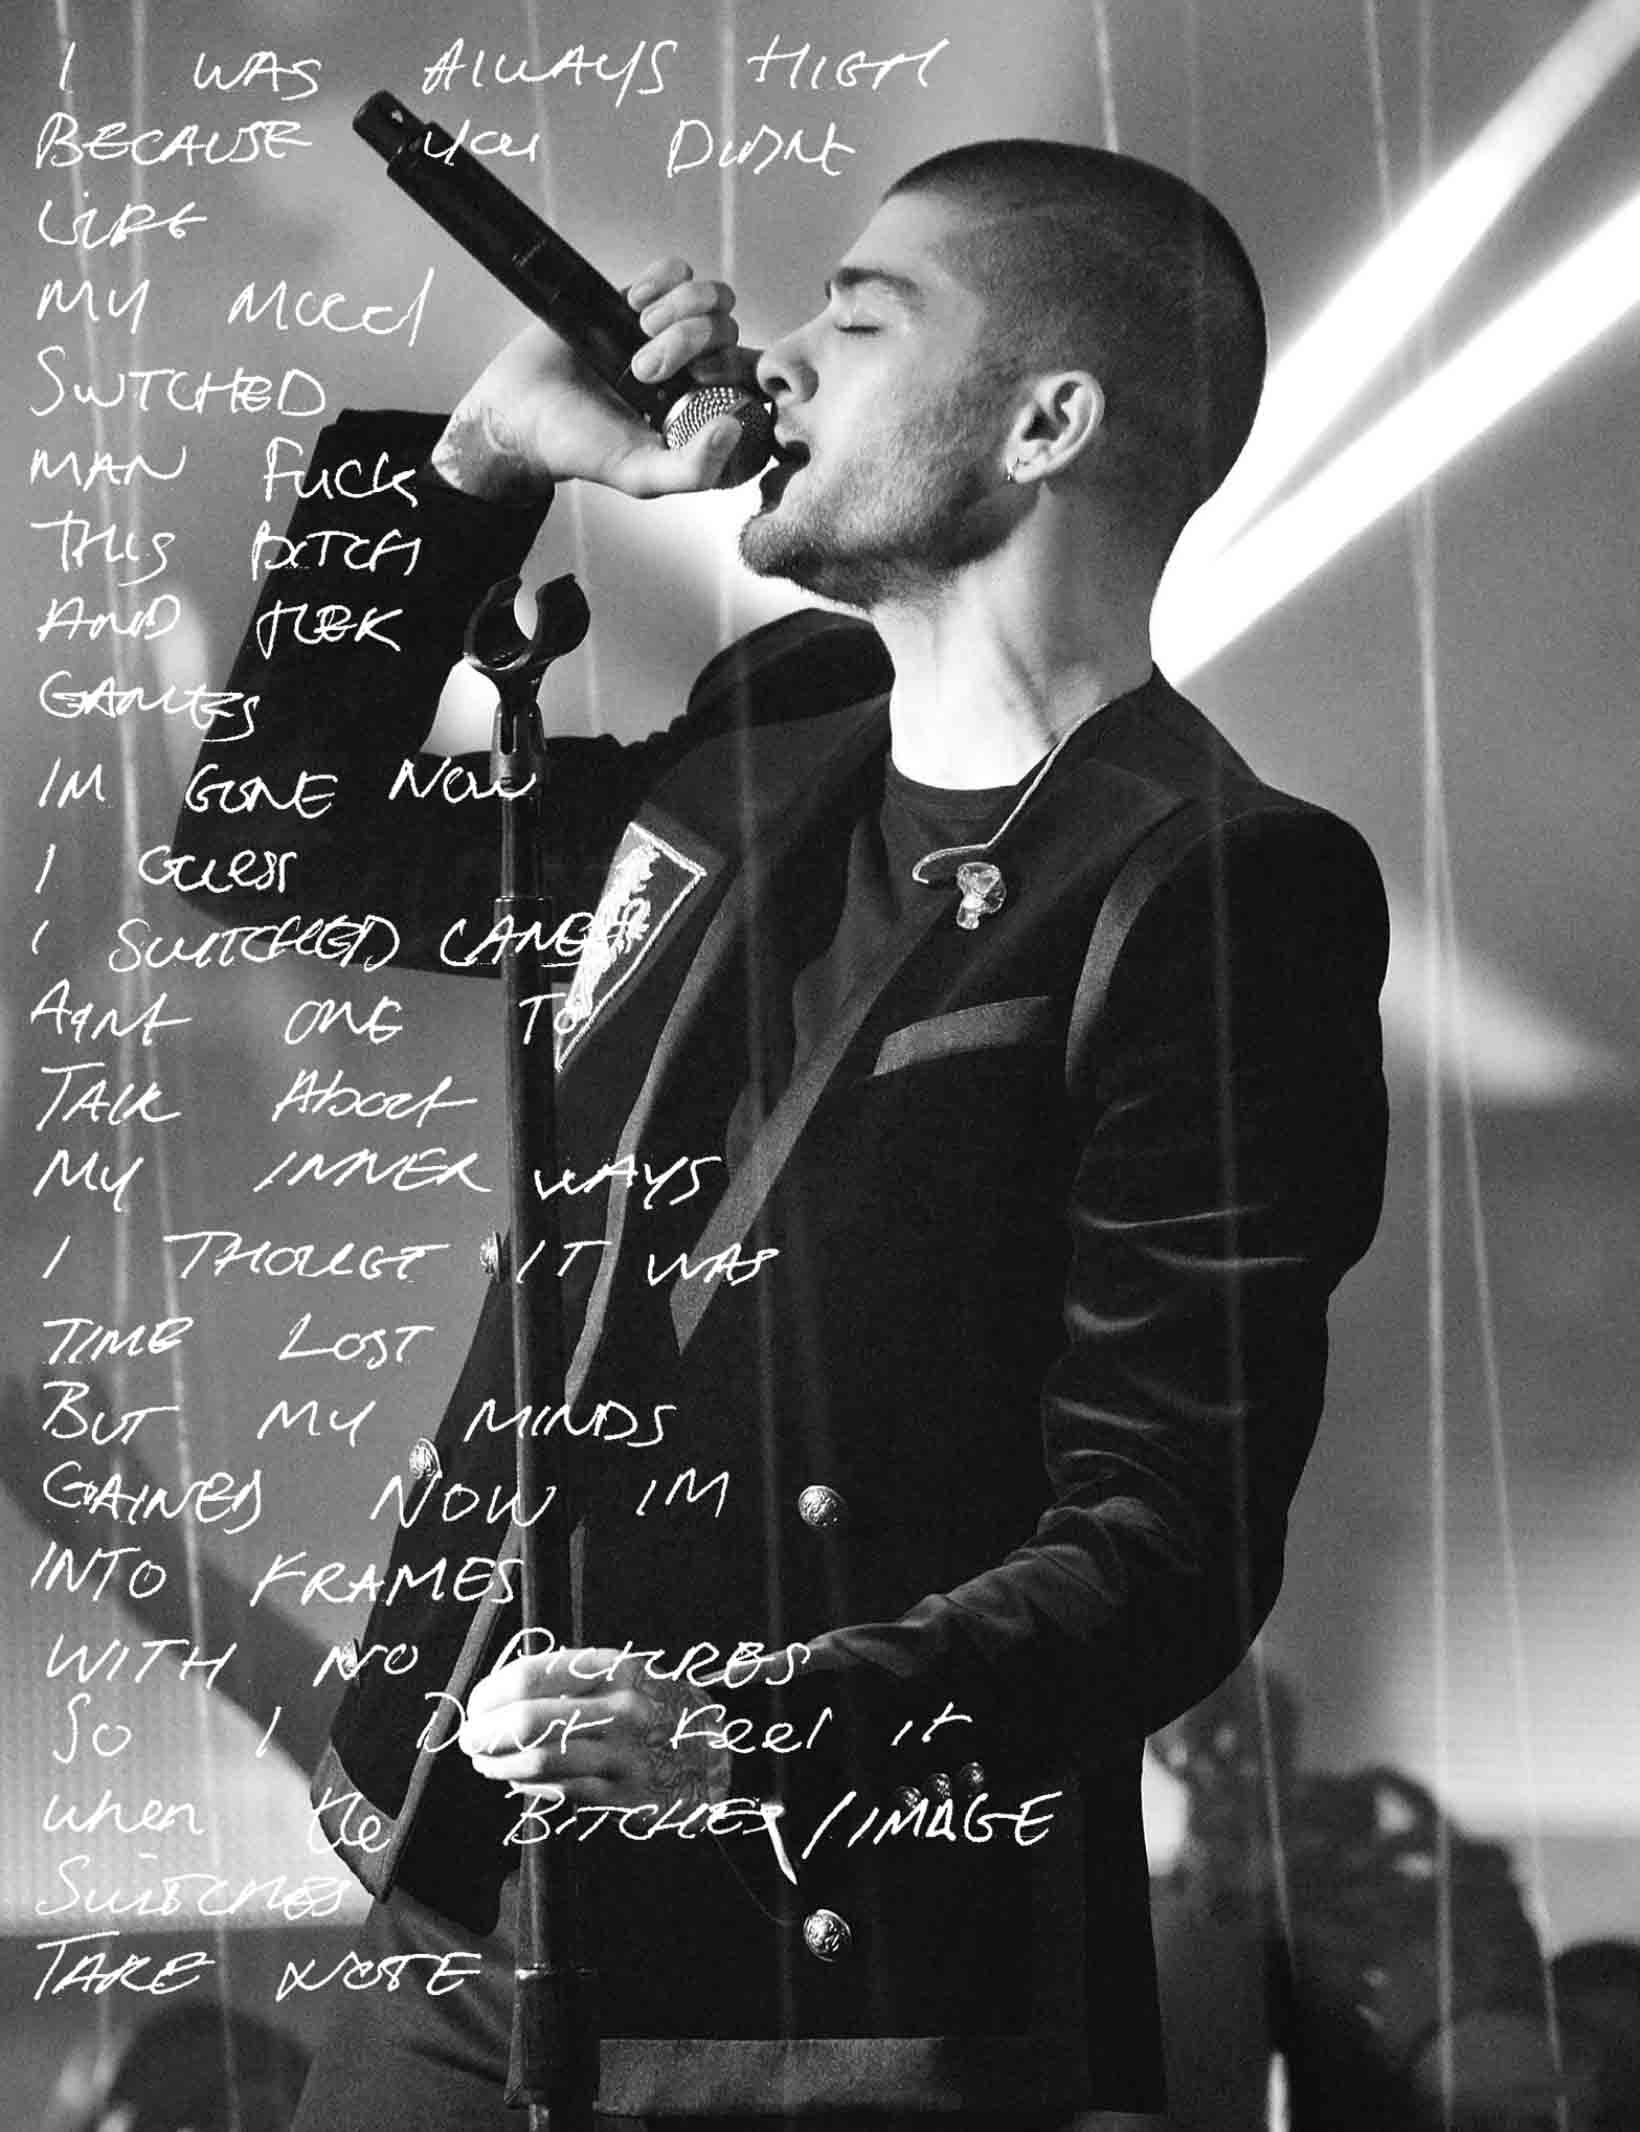 I WAS ALWAYS HIGH
BECAUSE you DIDNt
LIFE
MY Mood
SWTCHED
MAN FUCK
THIS BITCH
AND
GAMES
IM GONE NOW
I GUESS
I SWITCHED LANES
AqNt ONE TO
TALK About
MY INNER WAYS
I THOUGT IT WAS
TIME LOST
BUT MY MINDS
GAINED NOW IM
INTO FRAMES
WITH NO PICTURES
So I Don't Feel it
when the BITCHES/IMAGE
SWITCHES
TAKE NOTE